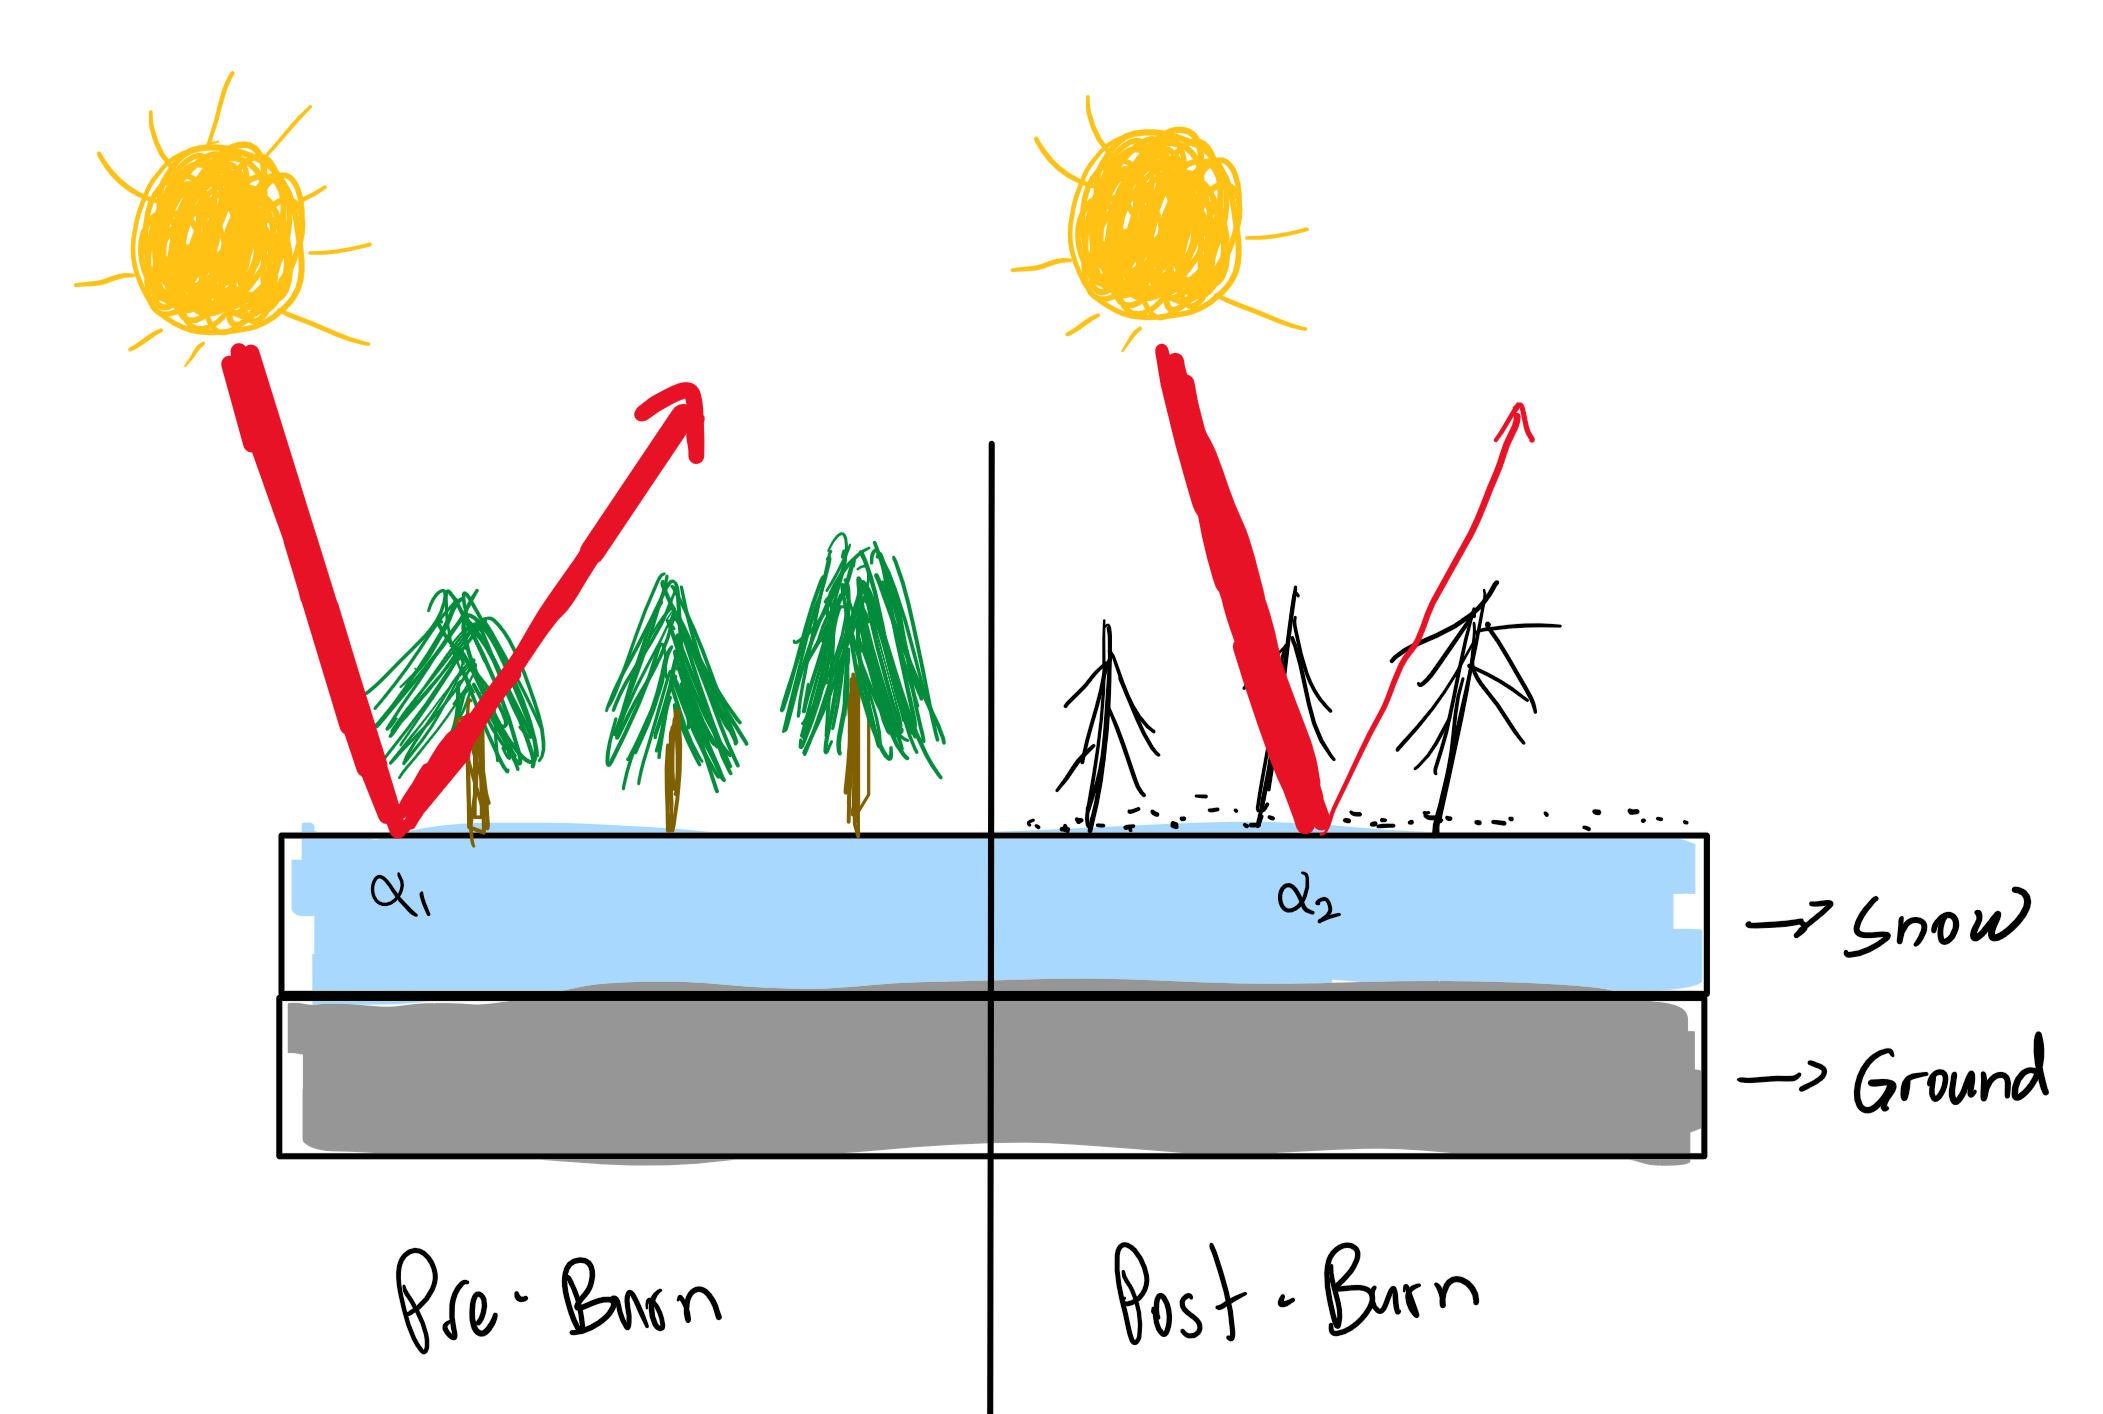 α₁
α₂
→ Snow
→ Ground
Pre-Burn
Post-Burn